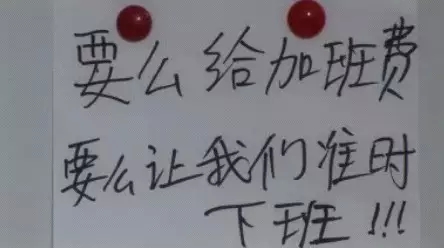 要么给加班费
要么让我们准时
下班!!!